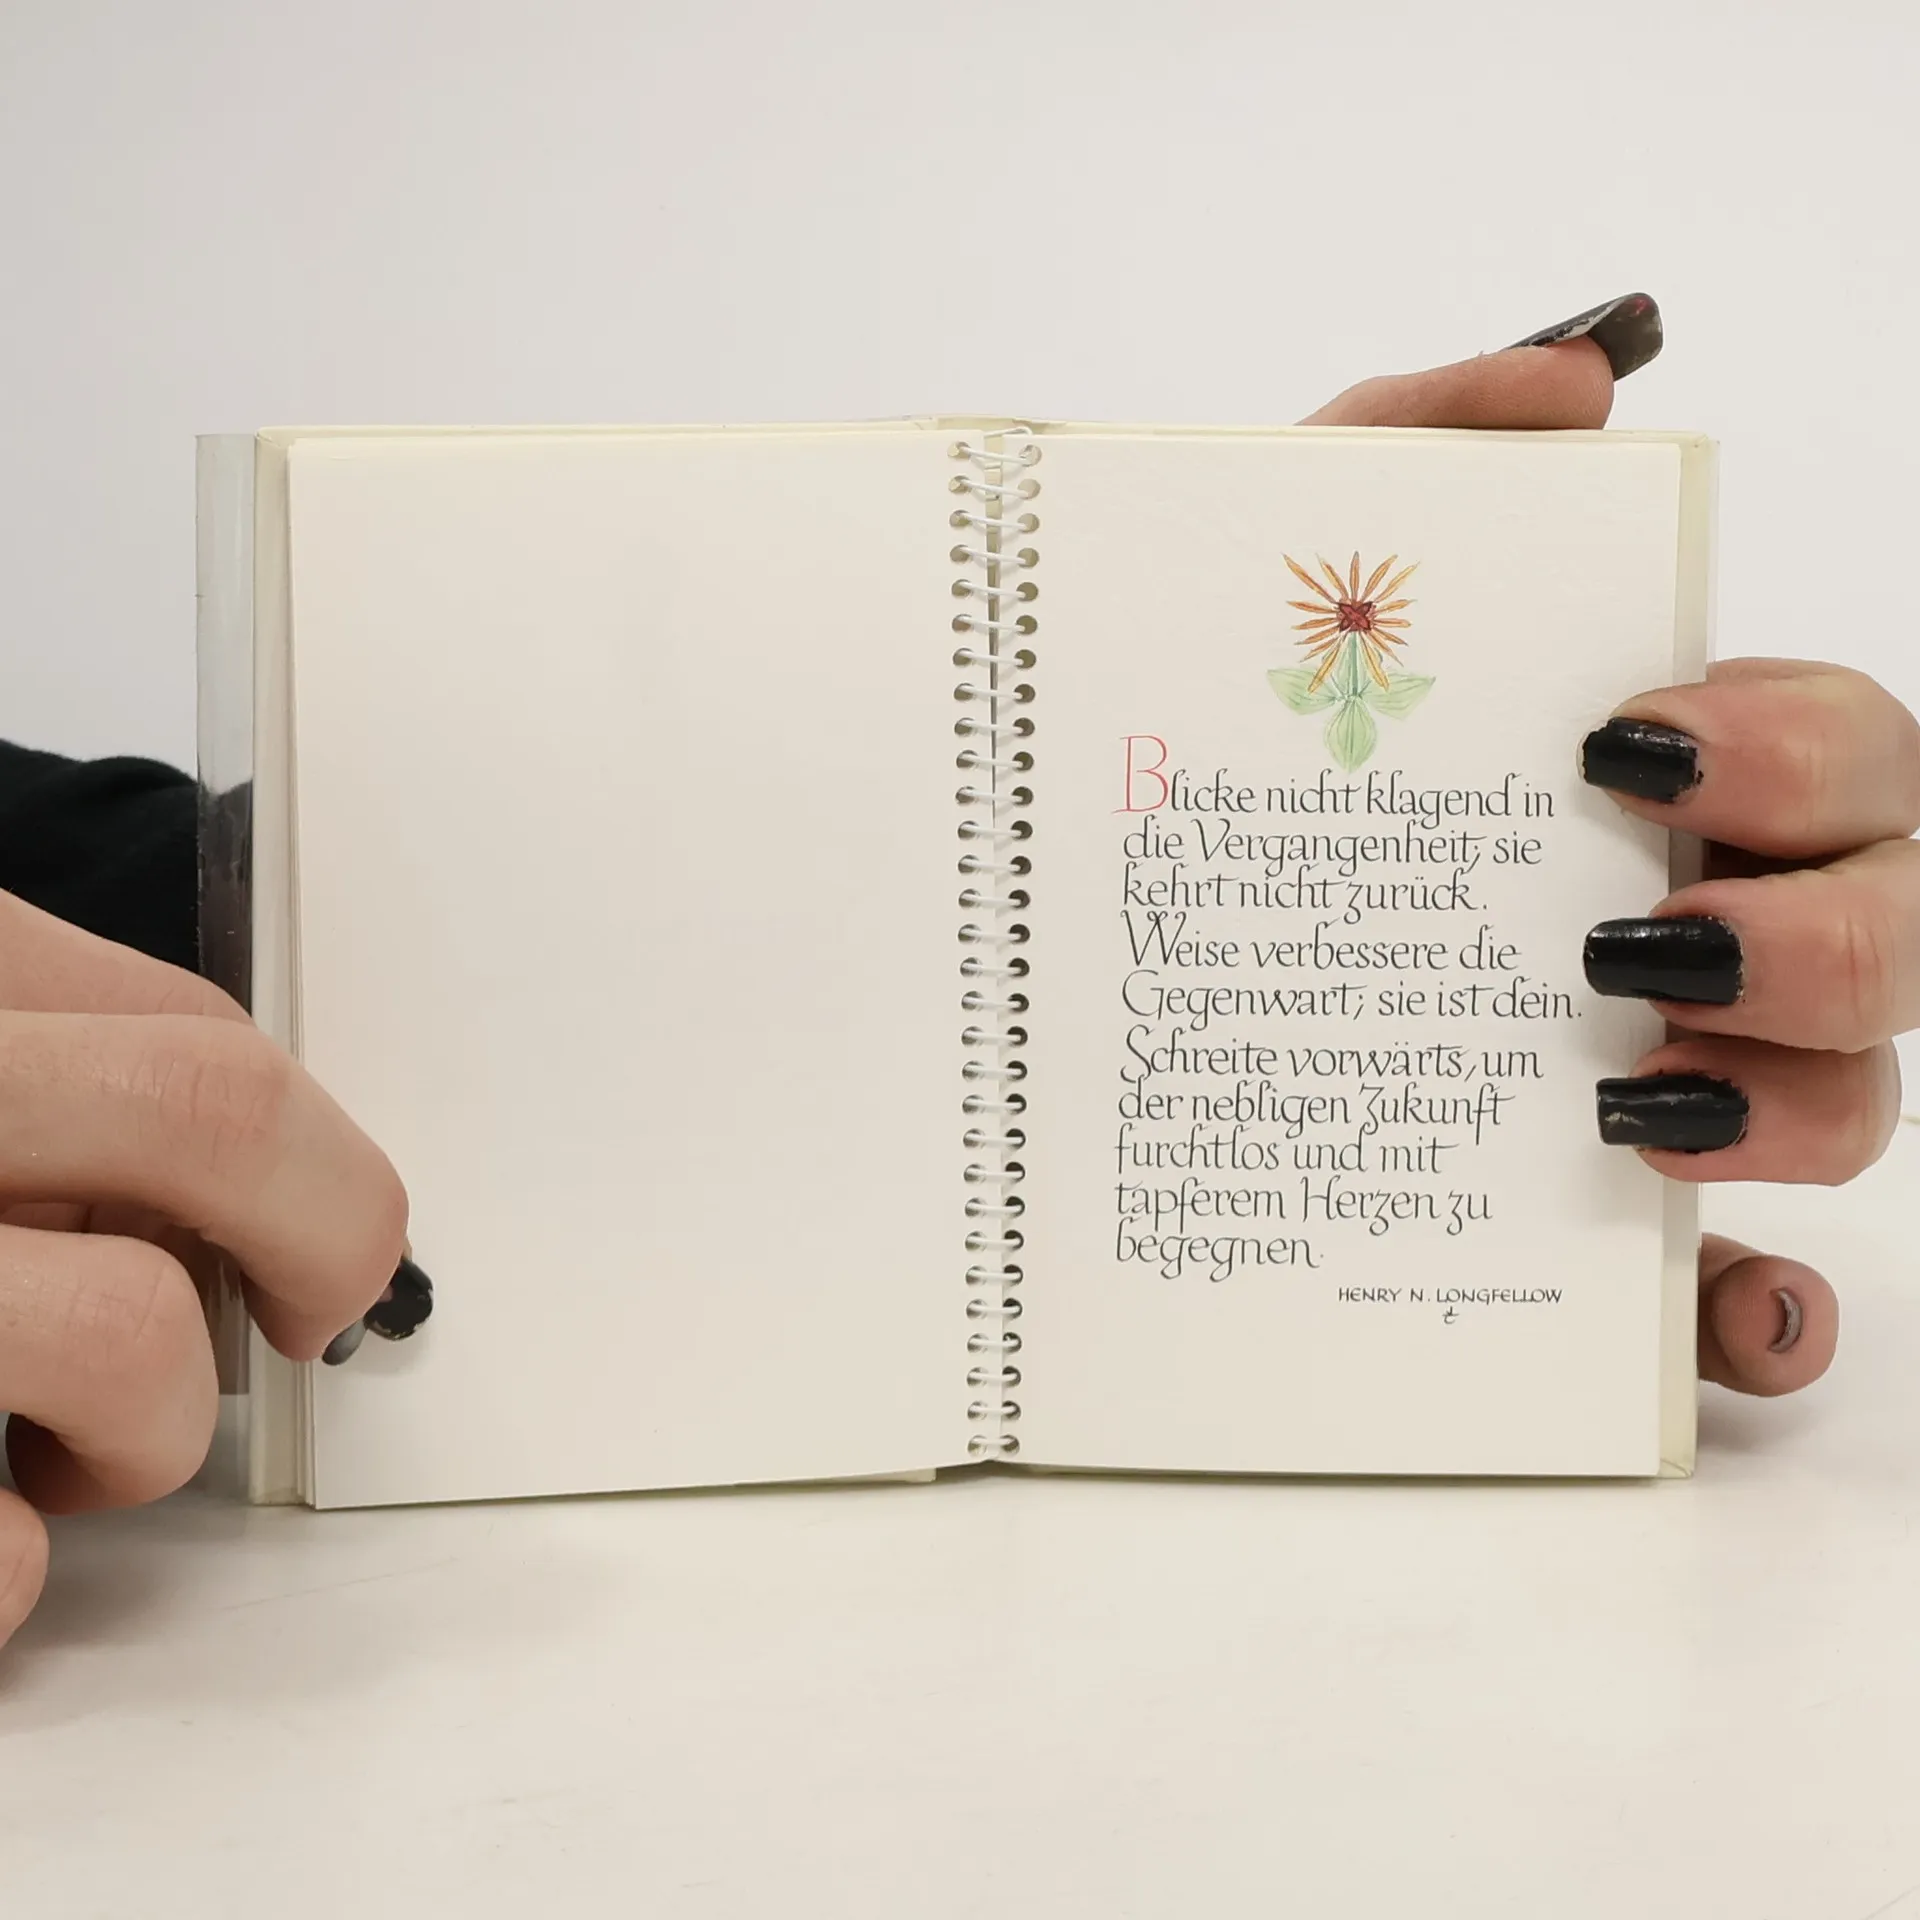 Blicke nicht klagend in
die Vergangenheit; sie
kehrt nicht zurück.
Weise verbessere die
Gegenwart; sie ist dein.
Schreite vorwärts, um
der nebligen Zukunft
furchtlos und mit
tapferem Herzen zu
begegnen.
HENRY N. LONGFELLOW